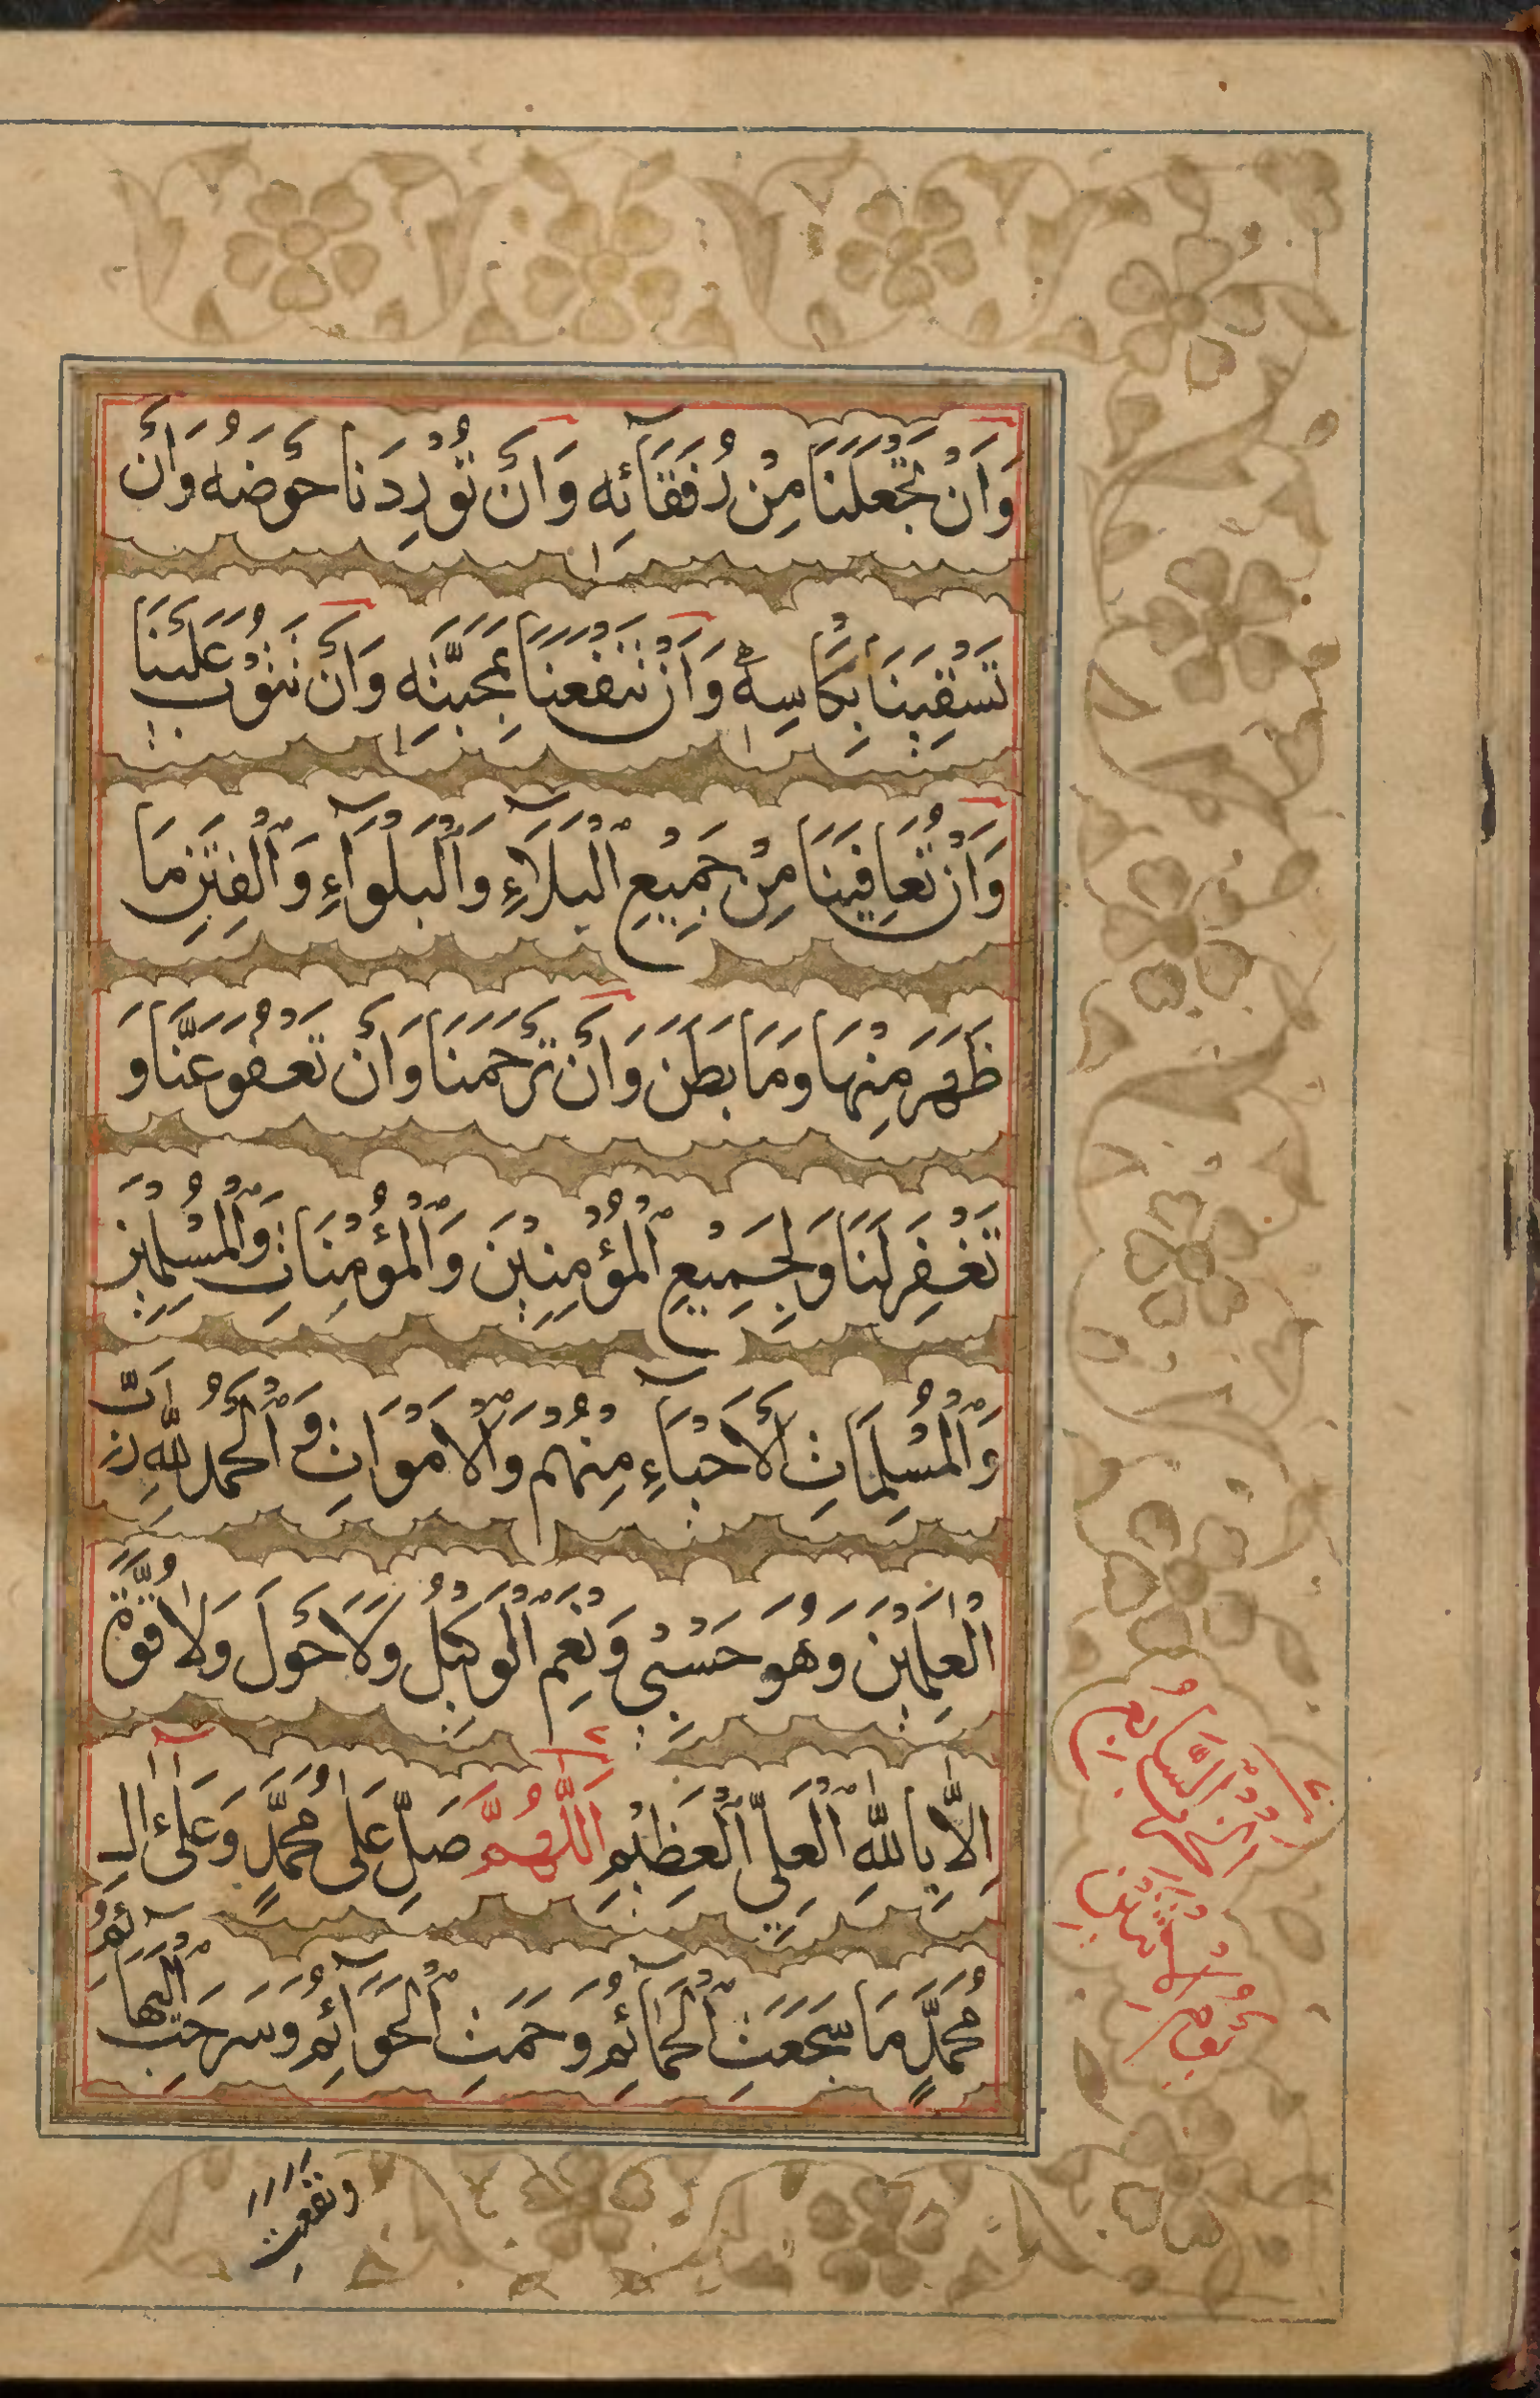 وَاَنْ تَجْعَلَنَا مِنْ رُفَقَآئِهِ وَاَنْ تُوْرِدَنَا حَوْضَهُ وَاَنْ
تَسْقِيَنَا بِكَاْسِهِ وَاَنْ تَنْفَعَنَا بِمَحَبَّتِهِ وَاَنْ تَتُوْبَ عَلَيْنَا
وَاَنْ تُعَافِيَنَا مِنْ جَمِيْعِ الْبَلَآءِ وَالْبَلْوَآءِ وَالْفِتَنِ مَا
ظَهَرَ مِنْهَا وَمَا بَطَنَ وَاَنْ تَرْحَمَنَا وَاَنْ تَعْفُوَ عَنَّا وَ
تَغْفِرَ لَنَا وَلِجَمِيْعِ الْمُؤْمِنِيْنَ وَالْمُؤْمِنَاتِ وَالْمُسْلِمِيْنَ
وَالْمُسْلِمَاتِ الْاَحْيَآءِ مِنْهُمْ وَالْاَمْوَاتِ وَالْحَمْدُ لِلّٰهِ رَبِّ
الْعٰلَمِيْنَ وَهُوَ حَسْبِيْ وَنِعْمَ الْوَكِيْلُ وَلَا حَوْلَ وَلَا قُوَّةَ
اِلَّا بِاللّٰهِ الْعَلِيِّ الْعَظِيْمِ اَللّٰهُمَّ صَلِّ عَلٰى مُحَمَّدٍ وَعَلٰٓى اٰلِ
مُحَمَّدٍ مَا سَجَعَتِ الْحَمَآئِمُ وَحَمَتِ الْحَوَآئِمُ وَسَرَحَتِ الْبَهَآئِمُ
ونفعت